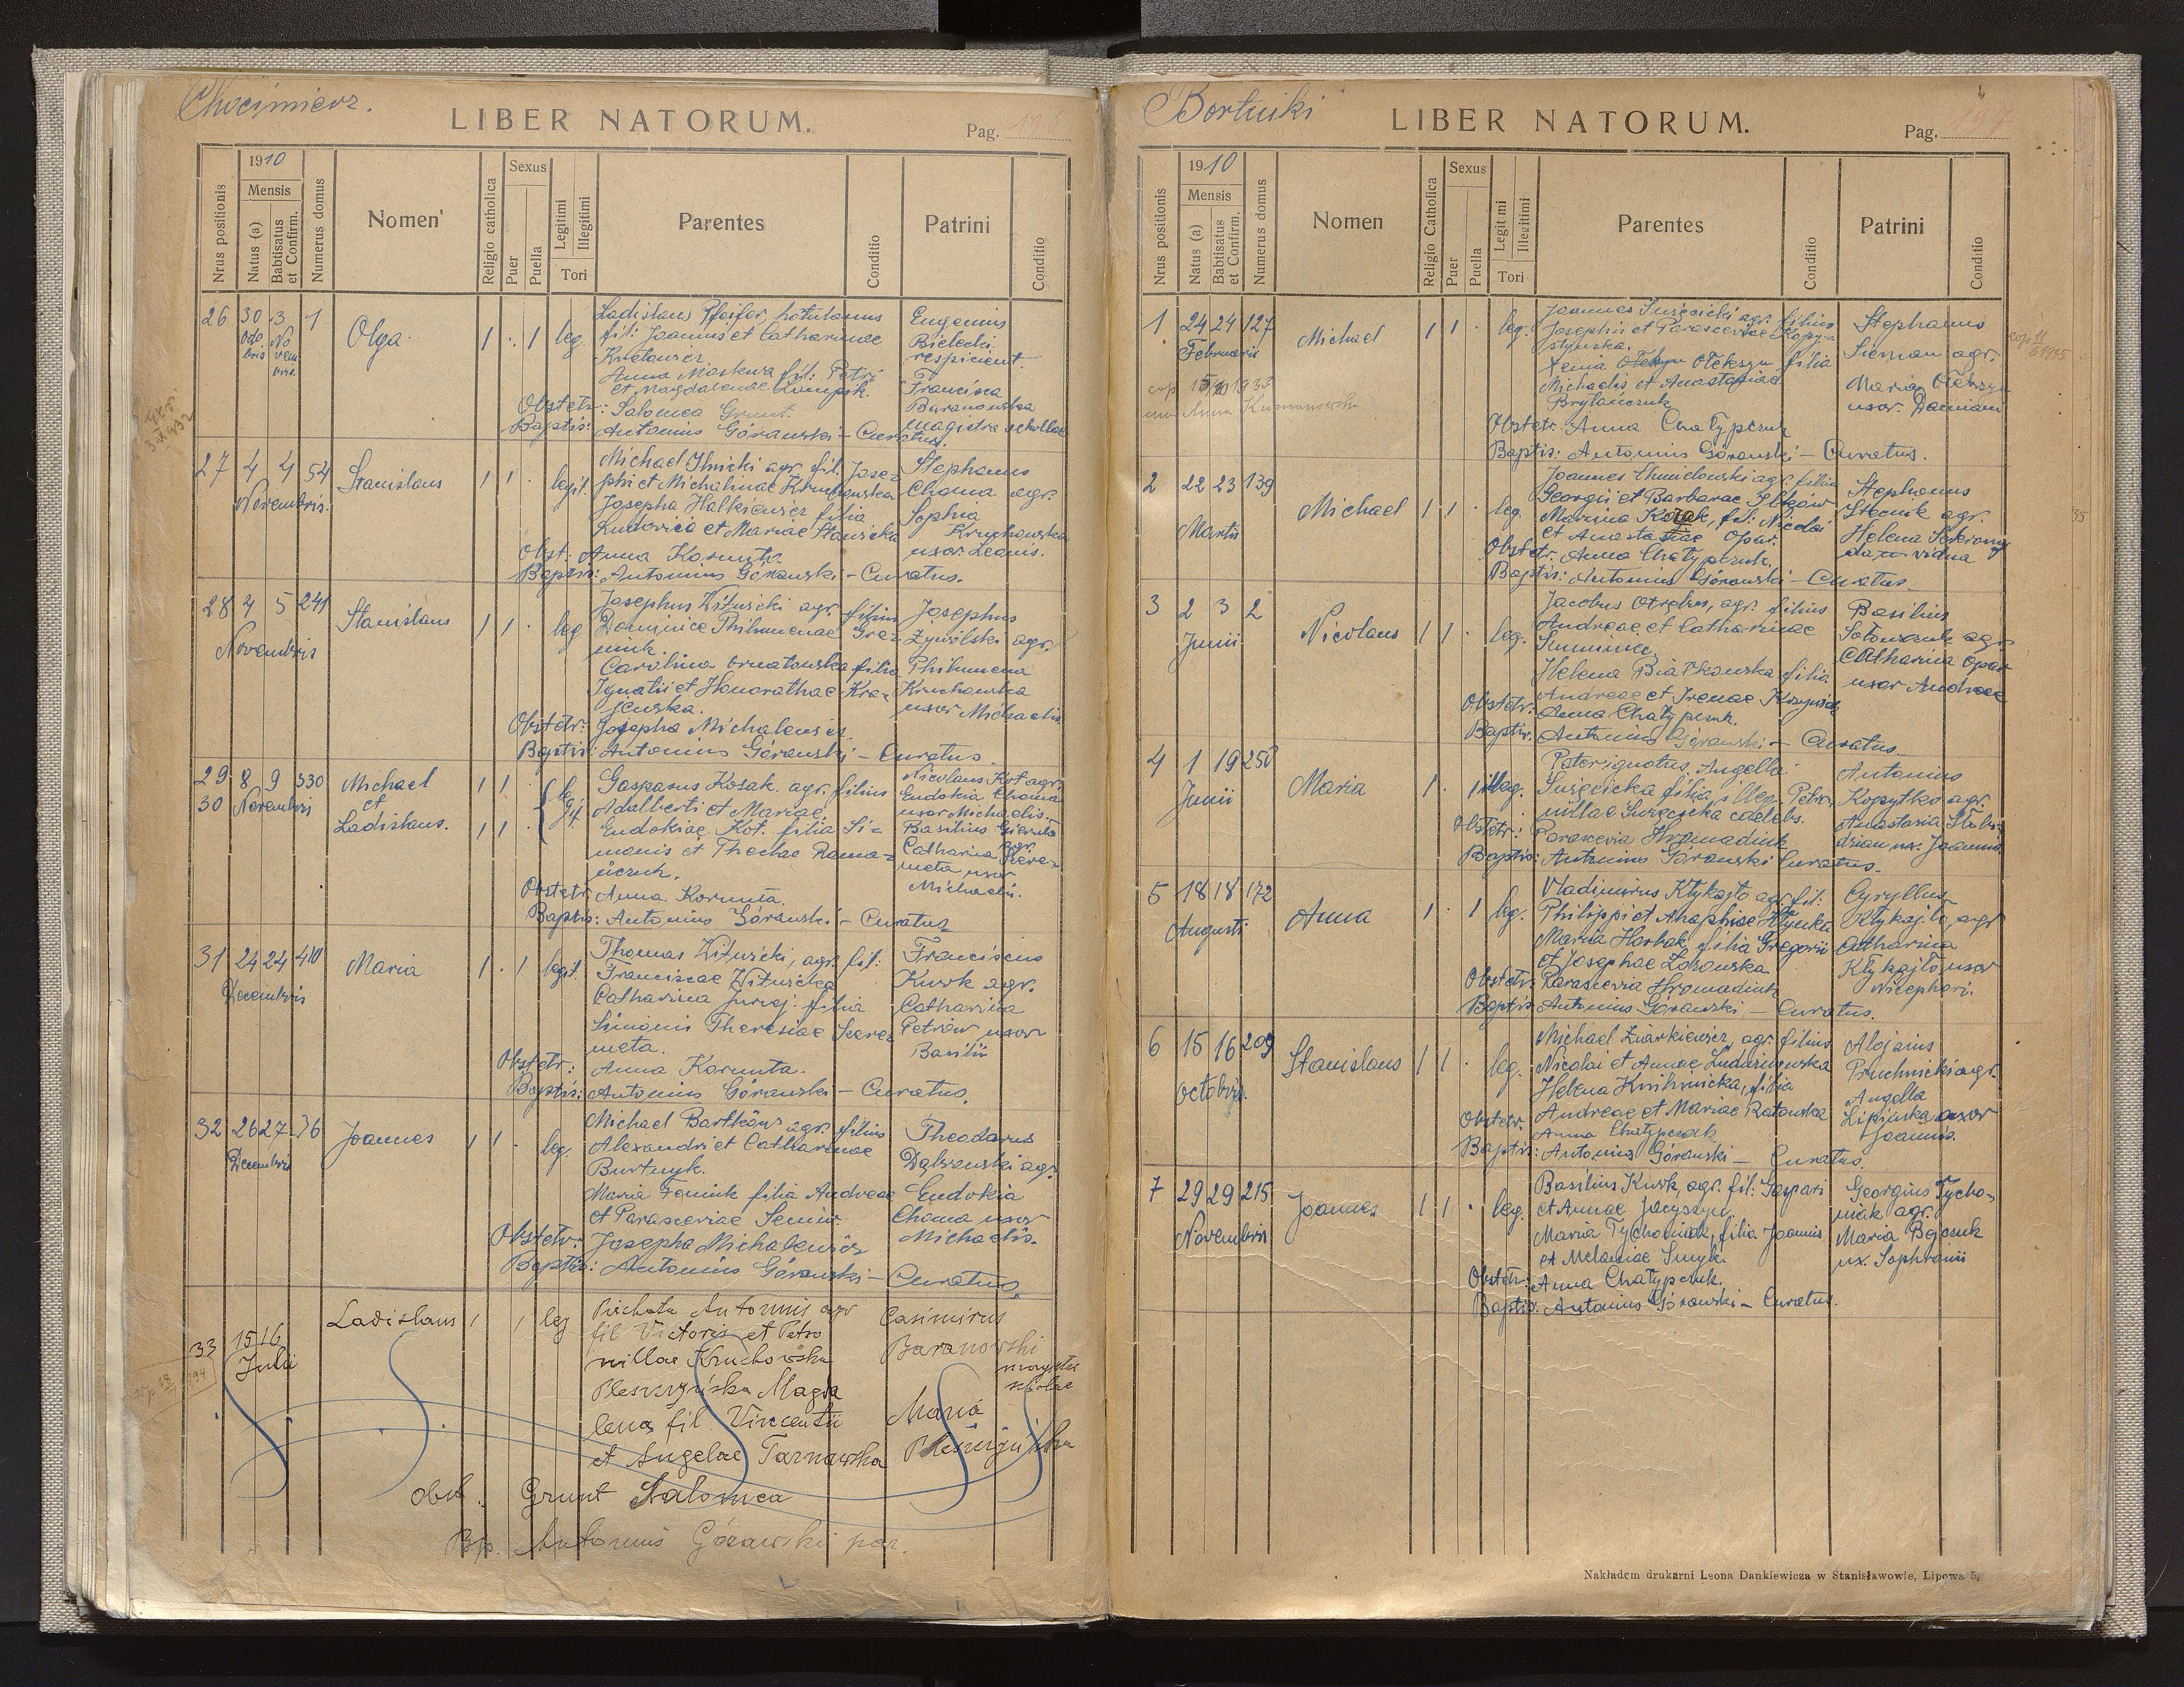 Chocimierz.
LIBER NATORUM.
Pag.
Nrus positionis
1910
Mensis
Natus (a)
Babtisatus et Confirm.
Numerus domus
Nomen
Religio catholica
Sexus
Puer
Puella
Legitimi
Illegitimi
Tori
Parentes
Conditio
Patrini
Conditio
26 30 3 1
Octobris Novembris
Olga
1 1 leg.
Ladislaus Pfeifer,
fil: Joannis et Catharinae
Anna Moskwa fil: Petri
et Magdalenae
Obstetr: Salomea Grunt.
Baptis: Antonius Górawski - Curatus.
Eugenius
Bielecki
respicient.
Francisca
Baranowska
magistra scholae
27 4 4 54
Novembris.
Stanislaus
1 1 legit.
Michael Ilnicki agr. fil. Jose-
phi et Michalinae Kruchowska
Josepha Halkiewicz filia
Ludovici et Mariae
Obst: Anna Kormuta.
Baptis: Antonius Górawski - Curatus.
Stephanus
Choma agr.
Sophia
Kruchowska
uxor Leonis.
28 4 5 241
Novembris
Stanislaus
1 1 leg
Josephus Witwicki agr. filius
Dominici et Philumenae
Carolina Ornatowska filia
Ignatii et Honorathae Kra-
jewska.
Obstetr: Josepha Michalewicz.
Baptis: Antonius Górawski - Curatus.
Josephus
Żywilski agr.
Philumena
Kruchowska
uxor Michaelis
29 8 9 330
30 Novembri
Michael
et
Ladislaus.
1 1
1 1
legit.
Gasparus Kosak. agr. filius
Adalberti et Mariae.
Eudokiae Kot. filia Si-
monis et Theclae Roma-
niczuk.
Obstetr: Anna Kormuta.
Baptis: Antonius Górawski - Curatus
Nicolaus Kot agr.
Eudokia Choma
uxor Michaelis.
Basilius
agr.
Catharina Szere-
meta uxor
Michaelis.
31 24 24 410
Decembris
Maria
1 1 legit.
Thomas Witwicki, agr. fil:
Franciscae Witwicka
Catharina filia
Simonis Theresiae Szere-
meta.
Obstetr: Anna Kormuta.
Baptis: Antonius Górawski - Curatus.
Franciscus
Kurk agr.
Catharina
Petrów uxor
Basilii
32 26 27 76
Decembris
Joannes
1 1 leg.
Michael Bartków agr. filius
Alexandri et Catharinae
Burtnyk.
Maria Feniuk filia Andreae
et Parasceviae
Obstetr: Josepha Michalewicz
Baptis: Antonius Górawski - Curatus.
Theodorus
Dąbrowski agr.
Eudokia
Choma uxor
Michaelis.
33 15 16
Julii
Ladislaus 1 1 leg
Antonius agr
fil Victoris et Petro
nillae Kruchowska
Pleszczyńska Magda
lena fil Vincentii
et Angelae Tarnawska
Casimirus
Baranowski
magister
scholae
Maria
Pleszczyńska
obst. Grunt Salomea
Bp. Antonius Górawski par.
Bortniki
LIBER NATORUM.
Pag. 197
Nrus positionis
1910
Mensis
Natus (a)
Babtisatus et Confirm.
Numerus domus
Nomen
Religio Catholica
Sexus
Puer
Puella
Legit mi
Illegitimi
Tori
Parentes
Conditio
Patrini
Conditio
1 24 24 127
Februarii
Michael
1 1 leg.
Joannes Surzycicki agr. filius
Josephii et Parasceviae Kopy-
Xenia Olekszyn filia
Michaelis et Anastasiae
Brylańczuk
Obstetr: Anna Chatypczuk
Baptis: Antonius Górawski - Curatus.
Stephanus
Sieman agr.
Maria Olekszyn
uxor. Damiani
2 22 23 139
Martii
Michael
1 1 leg.
Joannes Chmielowski agr. filius
Georgii et Barbarae
Marina Kozak, fil: Nicolai
et Anastasiae Opar.
Obstetr: Anna Chatypczuk.
Baptis: Antonius Górawski - Curatus.
Stephanus
agr.
Helena
vidua
3 2 3 2
Junii
Nicolaus
1 1 leg.
Jacobus Otrębus, agr. filius
Andreae et Catharinae
Helena Białkowska filia
Andreae et Irenae
Obstetr: Anna Chatypczuk.
Baptis: Antonius Górawski - Curatus
Basilius
agr.
Catharina Opar
uxor Andreae
4 1 19 250
Junii
Maria
1 1 illeg.
Pater ignotus. Angella
Surzycicka filia illeg. Petro-
nillae Surzycicka caelebs.
Obstetr: Parascevia Hromadiuk
Baptis: Antonius Górawski Curatus.
Antonius
Kopytko agr.
Anastasia
ux. Joannis.
5 18 18 172
Augusti
Anna
1 1 leg.
Vladimirus Klykajło agr. fil:
Philippi et Ahaphiae
Maria Horbak, filia Gregorii
et Josephae
Obstetr: Parascevia Hromadiuk
Baptis: Antonius Górawski - Curatus.
Cyryllus
Klykajło, agr
Catharina
Klykajło uxor
Nicephori.
6 15 16 209
Octobris.
Stanislaus
1 1 leg.
Michael agr. filius
Nicolai et Annae
Helena Knihnicka, filia
Andreae et Mariae
Obstetr: Anna Chatypczuk
Baptis: Antonius Górawski - Curatus.
Alojsius
Pruchnicki agr.
Angella
Lipińska uxor
Joannis.
7 29 29 215
Novembris
Joannes
1 1 leg.
Basilius Kurk, agr. fil: Gaspari
et Annae Jacyszyn
Maria Tychoniak, filia Joannis
et Melaniae Smyk.
Obstetr: Anna Chatypczuk.
Baptis: Antonius Górawski - Curatus.
Georgius Tycho-
niak agr.
Maria Bojczuk
ux. Sophronii
Nakładem drukarni Leona Dankiewicza w Stanisławowie, Lipowa 5.